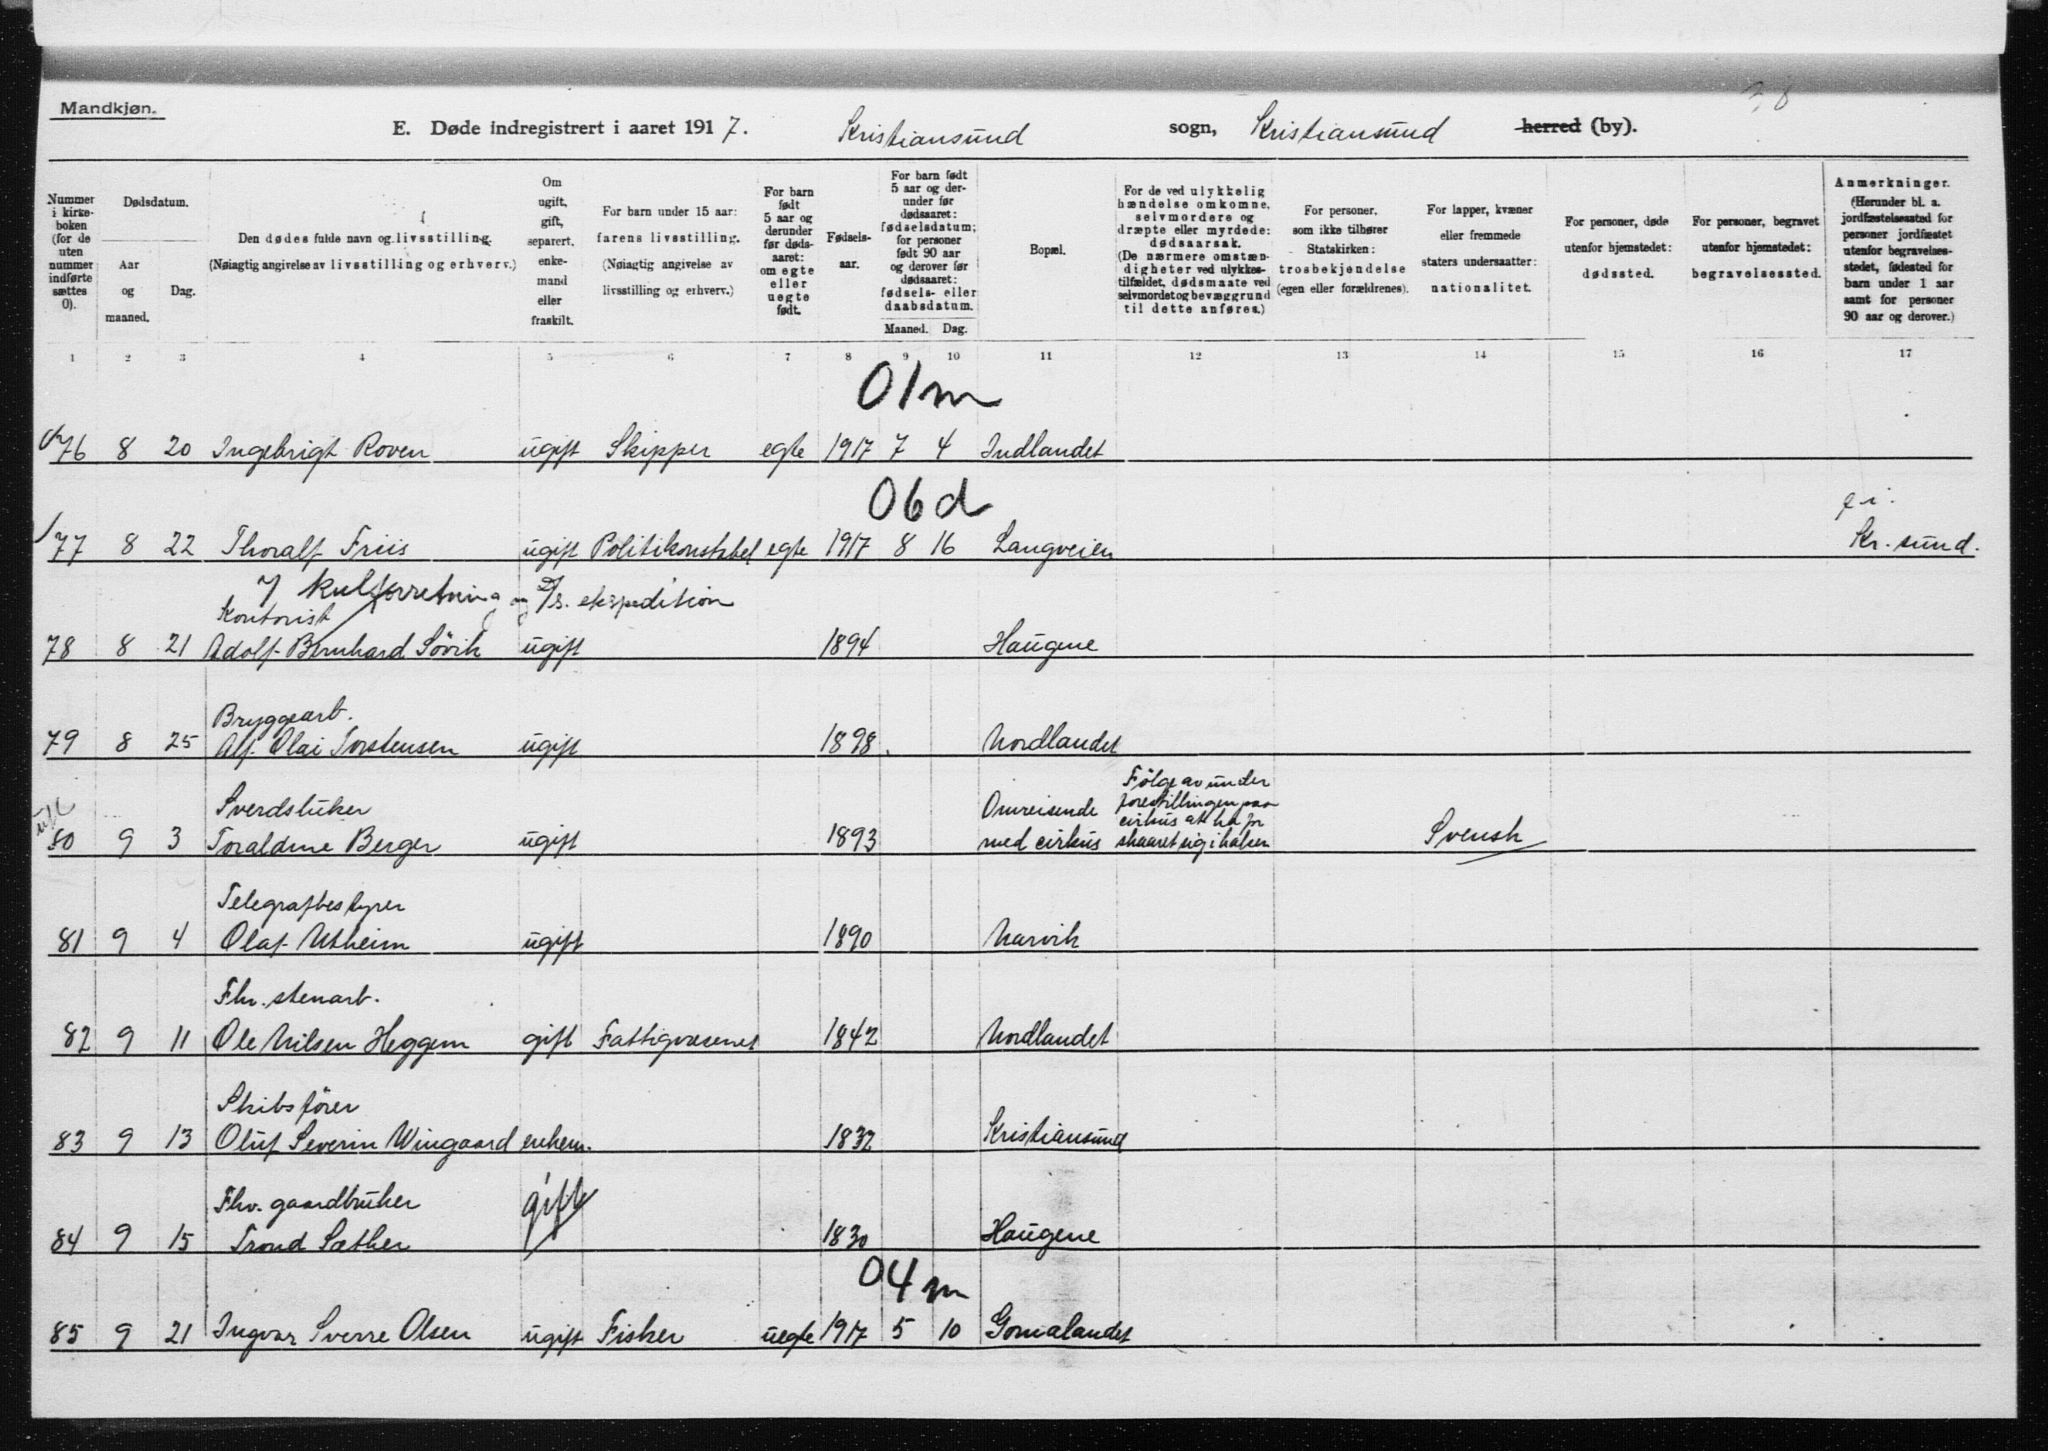 Mandkjøn.
E. Døde indregistrert i aaret 1917. Kristiansund sogn, Kristiansund herred (by).
Nummer i kirke-boken (for de uten nummer indførte sættes 0).
Dødsdatum.
Aar og maaned.
Dag.
Den dødes fulde navn og livsstilling.
(Nøiagtig angivelse av livsstilling og erhverv.)
Om ugift, gift, separert, enke-mand eller fraskilt.
For barn under 15 aar:
farens livsstilling.
(Nøiagtig angivelse av livsstilling og erhverv.)
For barn født 5 aar og derunder før døds-aaret: om egte eller uegte født.
Fødsels-aar.
For barn født 5 aar og der-under før dødsaaret: fødselsdatum; for personer født 90 aar og derover før dødsaaret: fødsels- eller daabsdatum.
Maaned. Dag.
Bopæl.
For de ved ulykkelig hændelse omkomne, selvmordere og dræpte eller myrdede: dødsaarsak.
(De nærmere omstæn-digheter ved ulykkes-tilfældet, dødsmaate ved selvmordet og bevæggrund til dette anføres.)
For personer, som ikke tilhører Statskirken: trosbekjendelse (egen eller forældrenes).
For lapper, kvæner eller fremmede staters undersaatter: nationalitet.
For personer, døde utenfor hjemstedet: dødssted.
For personer, begravet utenfor hjemstedet: begravelsessted.
Anmerkninger.
(Herunder bl. a. jordfæstelsessted for personer jordfæstet utenfor begravelses-stedet, fødested for barn under 1 aar samt for personer 90 aar og derover.)
1 2 3 4 5 6 7 8 9 10 11 12 13 14 15 16 17
01 m
76 8 20 Ingebrigt Roven ugift Skipper egte 1917 7 4 Indlandet
06 d
77 8 22 Thoralf Friis ugift Politikonstabel egte 1917 8 16 Langveien Kr.sund.
i kulforretning og D/s. ekspedition
Kontorist
78 8 21 Adolf Bernhard Sövik ugift 1894 Haugene
Bryggearb.
79 8 25 Alf Olai Torstensen ugift 1898 Nordlandet
Sverdsluker
80 9 3 Berger ugift 1893 Omreisende med cirkus Følge av under forestillingen paa cirkus at ha for skaaret sig i halsen Svensk
Telegrafbestyrer
81 9 4 Olaf Utheim ugift 1890 Narvik
Fhv. stenarb.
82 9 11 Ole Nilsen Heggem gift Fattigvæsenet 1842 Nordlandet
Skibsfører
83 9 13 Oluf Severin Wingaard enkem. 1832 Kristiansund
Fhv. gaardbruker gift
84 9 15 Trond Sæther 1830 Haugene
04 m
85 9 21 Ingvar Sverre Olsen ugift Fisker uegte 1917 5 10 Gomalandet